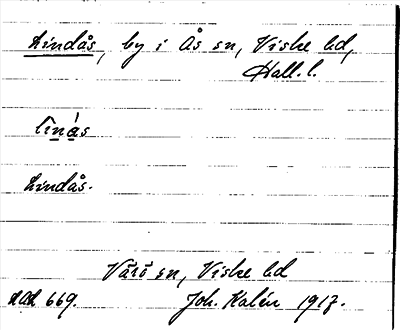 Lindås, by i Ås sn, Viske hd,
Hall. l.
lìnás
Lindås.
Värö sn, Viske hd
669. Joh. Kalén 1917.